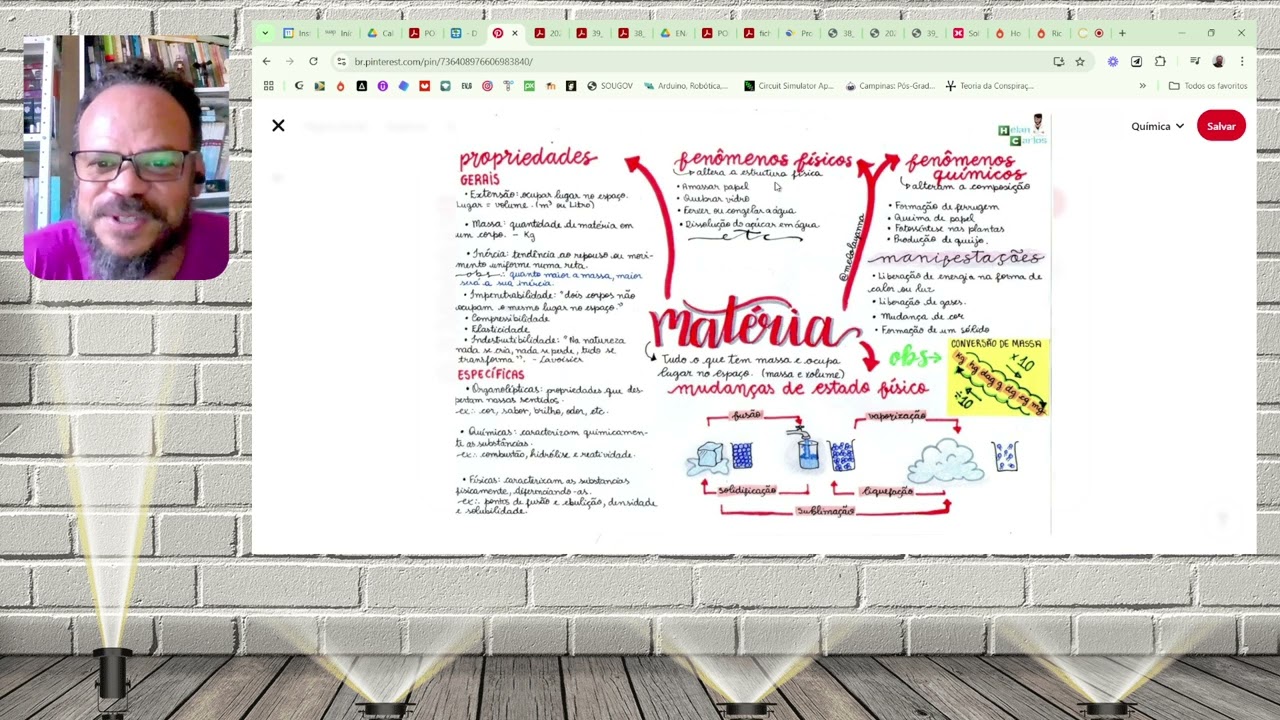 br.pinterest.com/pin/736408976606983840/
SOUGOV
Arduino, Robótica,...
Circuit Simulator Ap...
Campinas: Pós-Grad...
Teoria da Conspiraç...
Todos os favoritos
Química
Salvar
Helan
Carlos
propriedades
GERAIS
• Extensão: ocupar lugar no espaço.
Lugar = volume. (m³ ou Litro)
• Massa: quantidade de matéria em
um corpo. - Kg
• Inércia: tendência ao repouso ou movi-
mento uniforme numa reta.
obs.: quanto maior a massa, maior
será a sua inércia.
• Impenetrabilidade: "dois corpos não
ocupam o mesmo lugar no espaço."
• Compressibilidade
• Elasticidade
• Indestrutibilidade: "Na natureza
nada se cria, nada se perde, tudo se
transforma". - Lavoisier
ESPECÍFICAS
• Organolépticas: propriedades que des-
pertam nossos sentidos.
ex.: cor, sabor, brilho, odor, etc.
• Químicas: caracterizam quimicamen-
te as substâncias.
ex.: combustão, hidrólise e reatividade.
• Físicas: caracterizam as substancias
fisicamente, diferenciando-as.
ex.: pontos de fusão e ebulição, densidade
e solubilidade.
fenômenos físicos
altera a estrutura física
• Amassar papel
• Quebrar vidro
• Ferver ou congelar a água
• Dissolução do açúcar em água
etc
fenômenos
químicos
alteram a composição
• Formação de ferrugem
• Queima de papel
• Fotossíntese nas plantas
• Produção de queijo.
manifestações
• Liberação de energia na forma de
calor ou luz
• Liberação de gases.
• Mudança de cor
• Formação de um sólido
matéria
Tudo o que tem massa e ocupa
lugar no espaço. (massa e volume)
obs
CONVERSÃO DE MASSA
x10
kg hg dag g dg cg mg
÷10
mudanças de estado físico
fusão
vaporização
solidificação
liquefação
sublimação